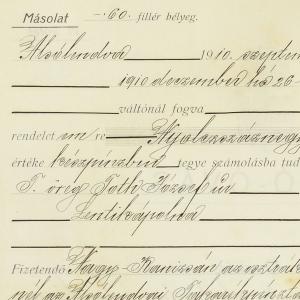 Másolat -.60. fillér bélyeg.
Alsólendva 1910. szeptem
1910 december hó 26-
váltónál fogva
rendelet en re Nyolczszáznegy
értéke készpénzben tegye számolásba tud
T. öreg Tóth József úr
Lentikápolna
Fizetendő Nagy-Kanizsán, az osztrák
nél az Alsólendvai Takarékpénzt